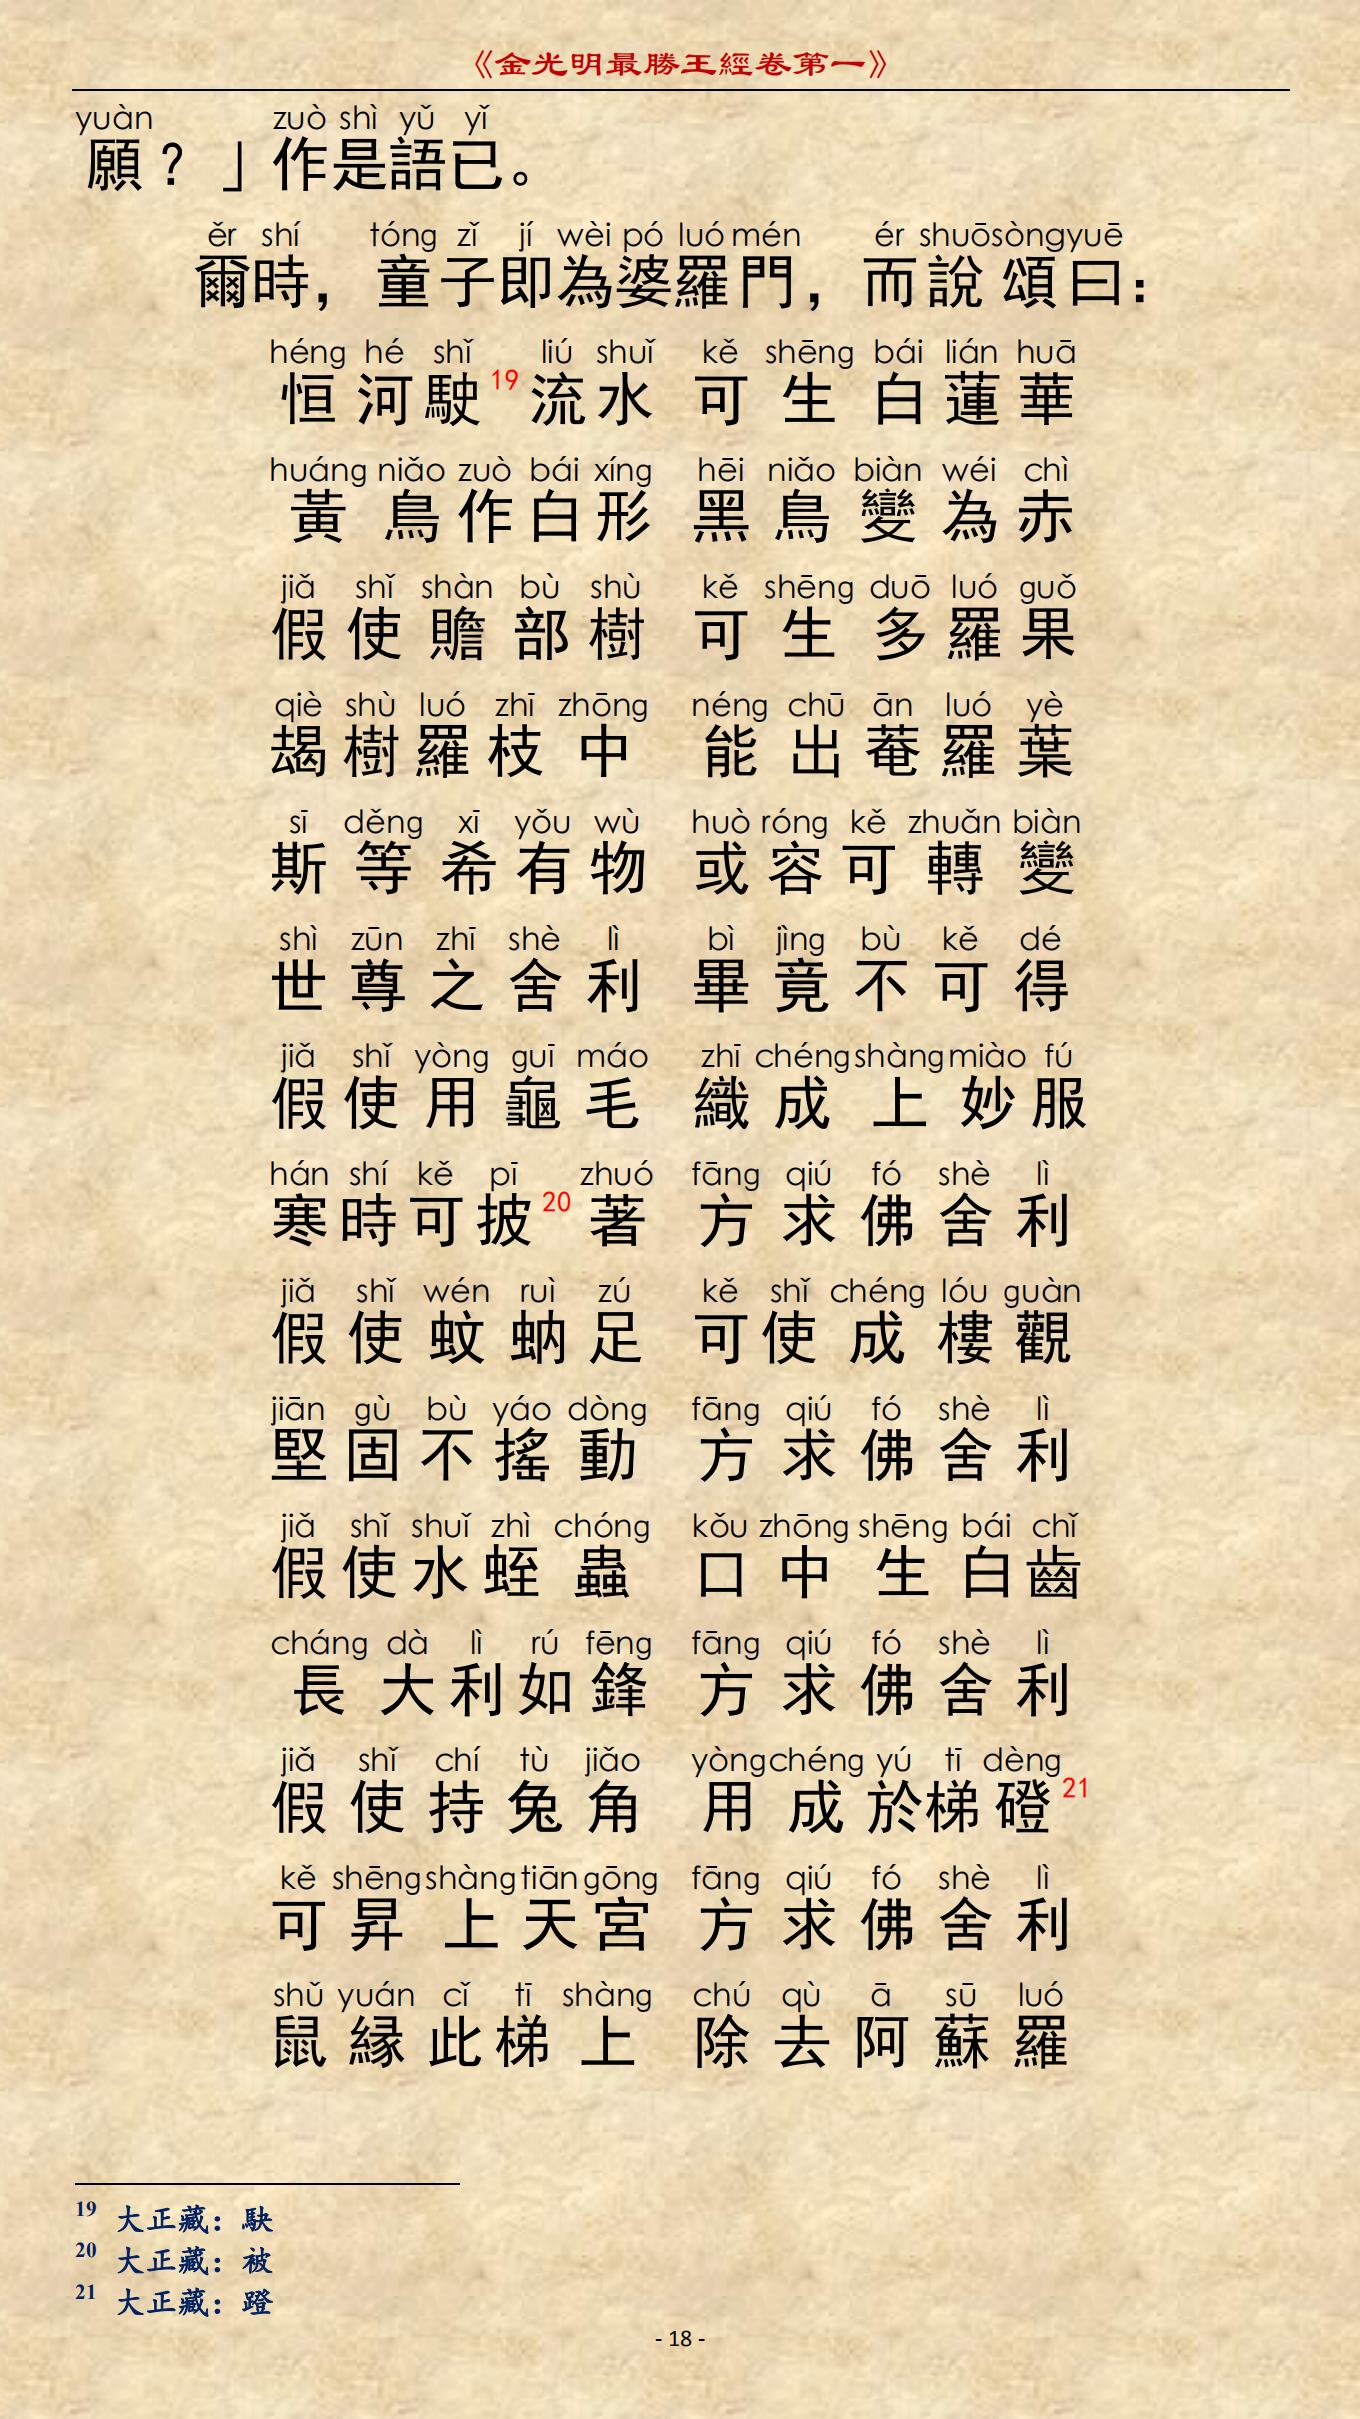 《金光明最勝王經卷第一》
yuàn zuò shì yǔ yǐ
願？」作是語已。
ěr shí tóng zǐ jí wèi pó luó mén ér shuō sòng yuē
爾時，童子即為婆羅門，而說頌曰：
héng hé shǐ liú shuǐ kě shēng bái lián huā
恒河駛19流水 可生白蓮華
huáng niǎo zuò bái xíng hēi niǎo biàn wéi chì
黃鳥作白形 黑鳥變為赤
jiǎ shǐ shàn bù shù kě shēng duō luó guǒ
假使贍部樹 可生多羅果
qiè shù luó zhī zhōng néng chū ān luó yè
朅樹羅枝中 能出菴羅葉
sī děng xī yǒu wù huò róng kě zhuǎn biàn
斯等希有物 或容可轉變
shì zūn zhī shè lì bì jìng bù kě dé
世尊之舍利 畢竟不可得
jiǎ shǐ yòng guī máo zhī chéng shàng miào fú
假使用龜毛 織成上妙服
hán shí kě pī zhuó fāng qiú fó shè lì
寒時可披20著 方求佛舍利
jiǎ shǐ wén ruì zú kě shǐ chéng lóu guàn
假使蚊蚋足 可使成樓觀
jiān gù bù yáo dòng fāng qiú fó shè lì
堅固不搖動 方求佛舍利
jiǎ shǐ shuǐ zhì chóng kǒu zhōng shēng bái chǐ
假使水蛭蟲 口中生白齒
cháng dà lì rú fēng fāng qiú fó shè lì
長大利如鋒 方求佛舍利
jiǎ shǐ chí tù jiǎo yòng chéng yú tī dèng
假使持兔角 用成於梯磴21
kě shēng shàng tiān gōng fāng qiú fó shè lì
可昇上天宮 方求佛舍利
shǔ yuán cǐ tī shàng chú qù ā sū luó
鼠緣此梯上 除去阿蘇羅
19 大正藏：駃
20 大正藏：被
21 大正藏：蹬
- 18 -